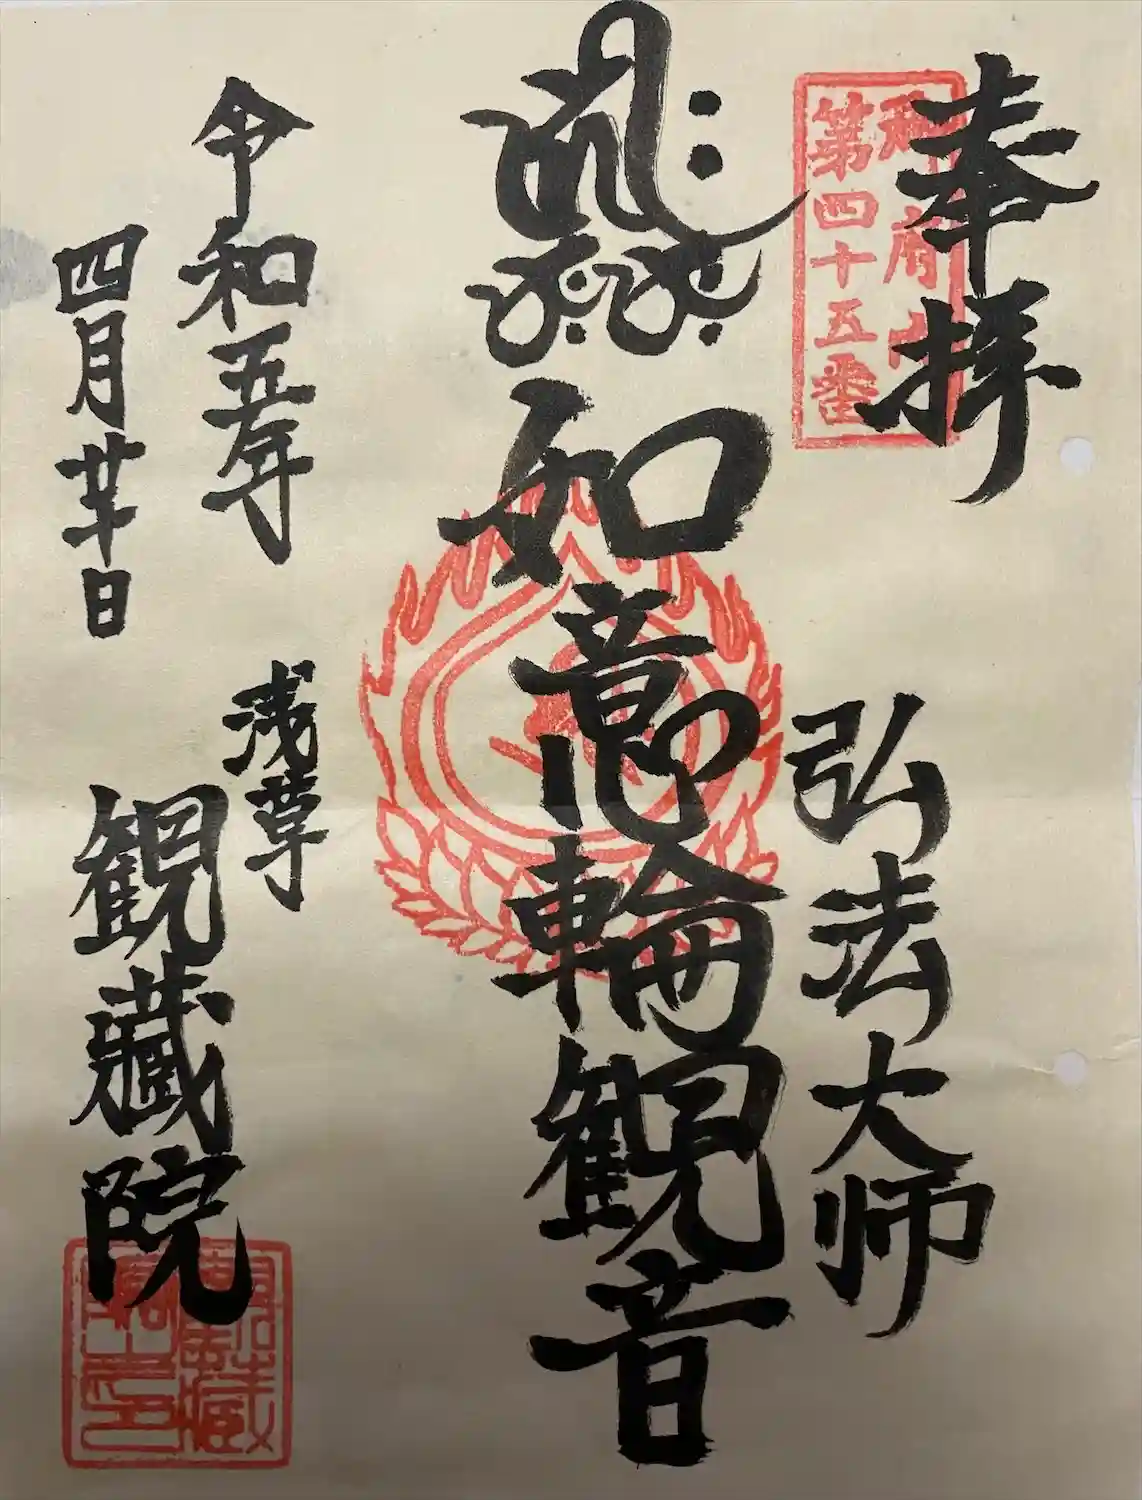 奉拝
府内
第四十五番
弘法大師
如意輪観音
令和五年
四月廿日
浅草
観蔵院